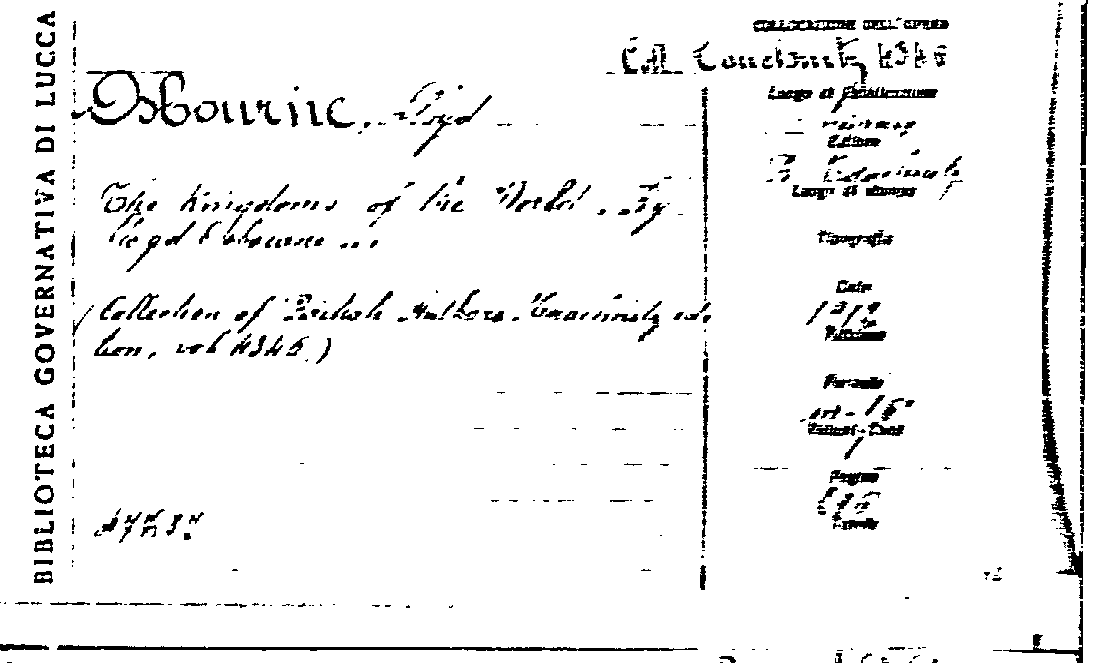 BIBLIOTECA GOVERNATIVA DI LUCCA
COLLOCAZIONE DELL'OPERA
Coll. Tauchnitz 4346
Osbourne, Lloyd
Luogo di Pubblicazione
Editore
B. Tauchnitz
Luogo di stampa
The Kingdoms of the World. By
Lloyd Osbourne ...
Tipografia
Data
(Collection of British Authors. Tauchnitz edi-
tion, vol 4346.)
Edizione
Formato
in-16°
Volumi - Tomi
1
Pagine
Tavole